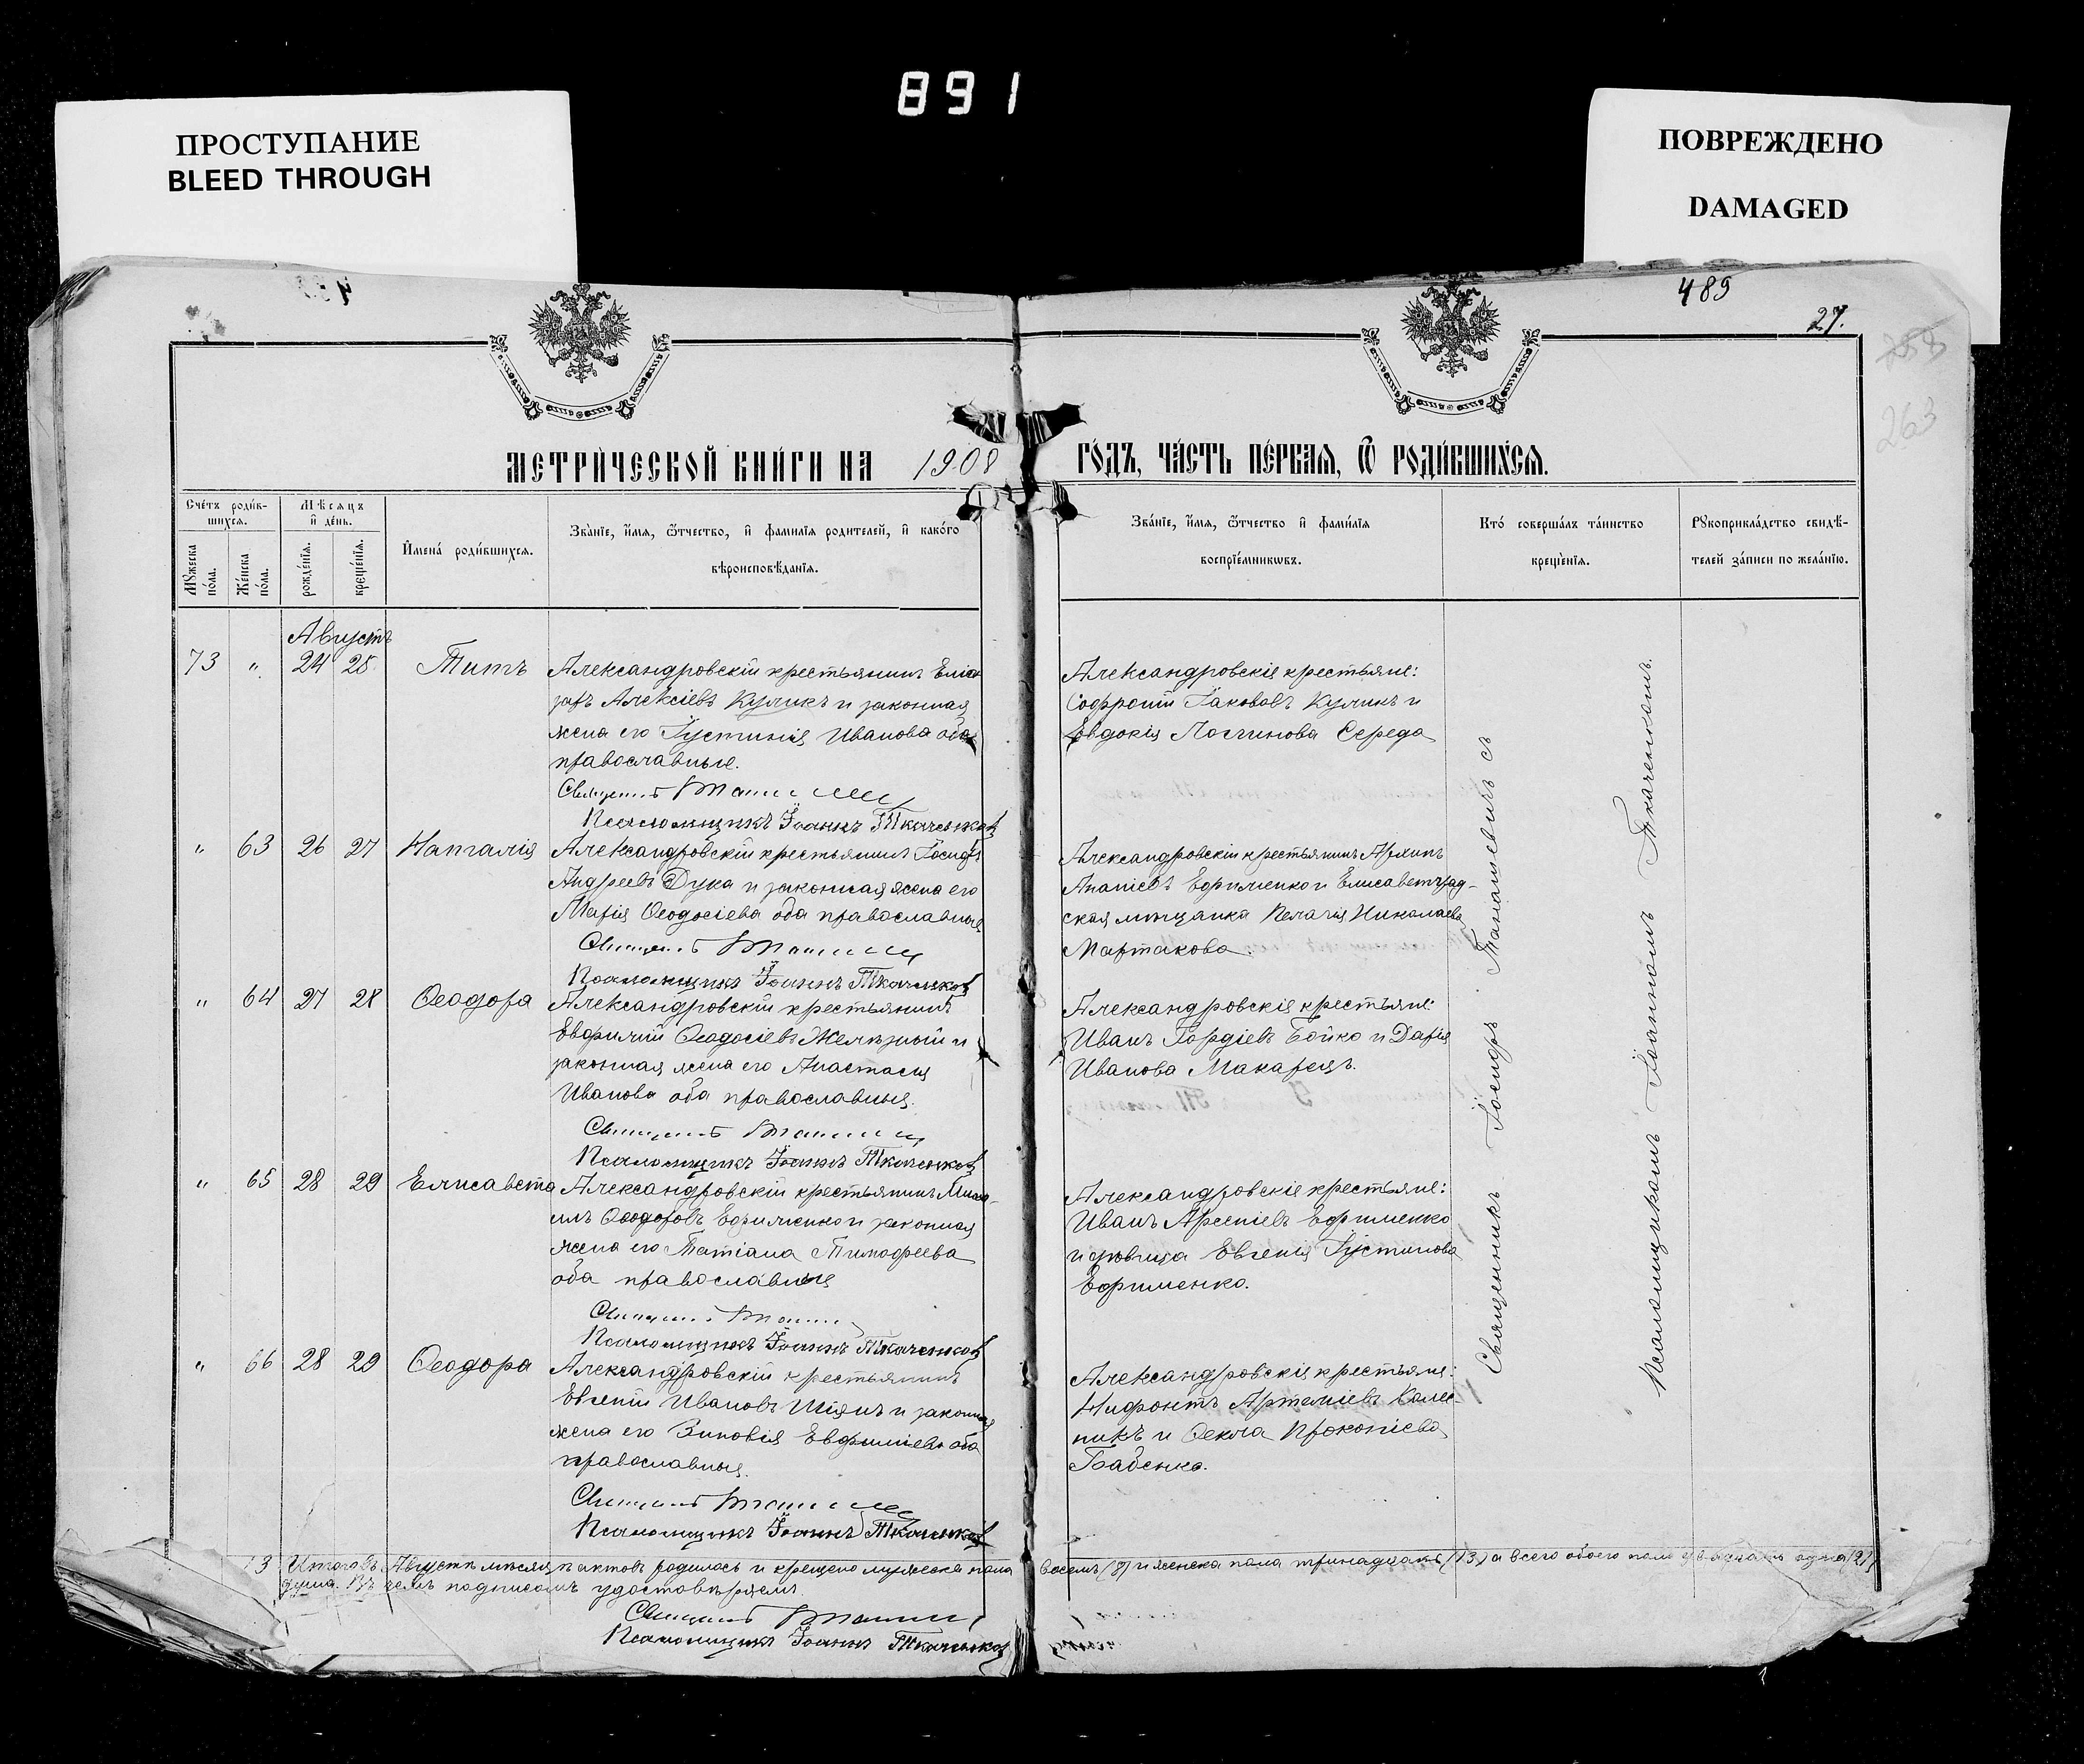 891
ПРОСТУПАНИЕ
BLEED THROUGH
ПОВРЕЖДЕНО
DAMAGED
489
27.
263
МЕТРИ́ЧЕСКОЙ КНИ́ГИ НА 1908
ГО́ДЪ, ЧА́СТЬ ПЕ́РВАЯ, Ѿ РОДИ́ВШИХСЯ.
Счéтъ роди́вшихся.
Му́жеска по́ла.
Же́нска по́ла.
Мѣсяцъ и҆ де́нь.
рожде́нїя.
креще́нїя.
И҆мена́ роди́вшихся.
Зва́нїе, и҆мя, ѻ҆тчество, и҆ фамилїя родителей, и҆ како́го
вѣроисповѣ́данїя.
Зва́нїе, и҆мя, ѻ҆тчество и҆ фами́лїя
воспрїе́мниковъ.
Кто́ соверша́лъ та́инство
креще́нїя.
Рꙋкоприкла́дство свидѣ́-
телей за́писи по жела́нїю.
Августъ
73 " 24 25 Титъ
Александровскій крестьянинъ Елиа
заръ Алексіевъ Куликъ и законная
жена его Іустинія Иванова оба
православные.
Священникъ
Псаломщикъ Іоаннъ Ткаченковъ
Александровскіе крестьяне:
Софроній Іаковавъ Куликъ и
Евдокія Логинова Середа
" 63 26 27 Наталія
Александровскій крестьянинъ Іосифъ
Андреевъ Дука и законная жена его
Марія Ѳеодосіева оба православные
Священникъ
Псаломщикъ Іоаннъ Ткаченковъ
Александровскій крестьянинъ Архипъ
Ананіевъ Ефименко и Елисаветград-
ская мѣщанка Пелагія Николаева
Мартакова.
" 64 27 28 Ѳеодора
Александровскій крестьянинъ
Евфимій Ѳеодосіевъ Желѣзный и
законная жена его Анастасія
Иванова оба православные.
Священникъ
Псаломщикъ Іоаннъ Ткаченковъ
Александровскіе крестьяне:
Иванъ Гордіевъ Бойко и Дарія
Иванова Макарецъ.
" 65 28 29 Елисавета
Александровскій крестьянинъ Миха-
илъ Ѳеодоровъ Ефименко и законная
жена его Татіана Тимофеева
оба православные
Священникъ
Псаломщикъ Іоаннъ Ткаченковъ
Александровскіе крестьяне:
Иванъ Арсеніевъ Ефименко
и дѣвица Евгенія Іустинова
Ефименко.
" 66 28 29 Ѳеодора
Александровскій крестьянинъ
Евгеній Ивановъ Шіянъ и законная
жена его Зиновія Евфиміева оба
православные.
Священникъ
Псаломщикъ Іоаннъ Ткаченковъ
Александровскіе крестьяне:
Нифонтъ Артеміевъ Колес-
никъ и Ѳекла Прокопіева
Бабенко.
Священникъ Іосифъ Танашевичъ съ
Псаломщикомъ Іоанномъ Ткаченкомъ.
13 Итого въ Августѣ мѣсяцѣ актовъ родилось и крещено мужеска пола восемь (8) и женска пола тринадцать (13) а всего обоего пола двадцать одна (21)
душа. Въ чемъ подписомъ удостовѣряемъ.
Священникъ
Псаломщикъ Іоаннъ Ткаченковъ